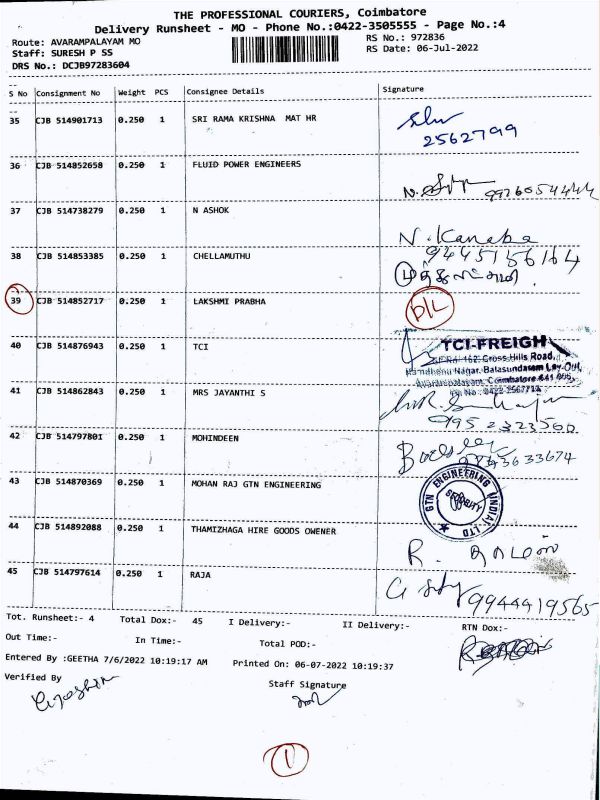 THE PROFESSIONAL COURIERS, Coimbatore
Delivery Runsheet - MO - Phone No.:0422-3505555 - Page No.:4
Route: AVARAMPALAYAM MO
RS No.: 972836
Staff: SURESH P SS
RS Date: 06-Jul-2022
DRS No.: DCJB97283604
S No Consignment No Weight PCS Consignee Details Signature
35 CJB 514901713 0.250 1 SRI RAMA KRISHNA MAT HR
2562799
36 CJB 514852658 0.250 1 FLUID POWER ENGINEERS
37 CJB 514738279 0.250 1 N ASHOK
N. Kanaka
38 CJB 514853385 0.250 1 CHELLAMUTHU
9445156164
39 CJB 514852717 0.250 1 LAKSHMI PRABHA D/L
40 CJB 514876943 0.250 1 TCI
TCI-FREIGH
162, Cross Hills Road,
Nagar, Balasundaram Lay-Out,
Coimbatore-641 006
41 CJB 514862843 0.250 1 MRS JAYANTHI S
9952323560
42 CJB 514797801 0.250 1 MOHINDEEN
43 CJB 514870369 0.250 1 MOHAN RAJ GTN ENGINEERING
GTN ENGINEERING (INDIA) LTD
SECURITY
44 CJB 514892088 0.250 1 THAMIZHAGA HIRE GOODS OWENER
R.
45 CJB 514797614 0.250 1 RAJA
9944419565
Tot. Runsheet:- 4 Total Dox:- 45 I Delivery:- II Delivery:- RTN Dox:-
Out Time:- In Time:- Total POD:-
Entered By :GEETHA 7/6/2022 10:19:17 AM Printed On: 06-07-2022 10:19:37
Verified By Staff Signature
1